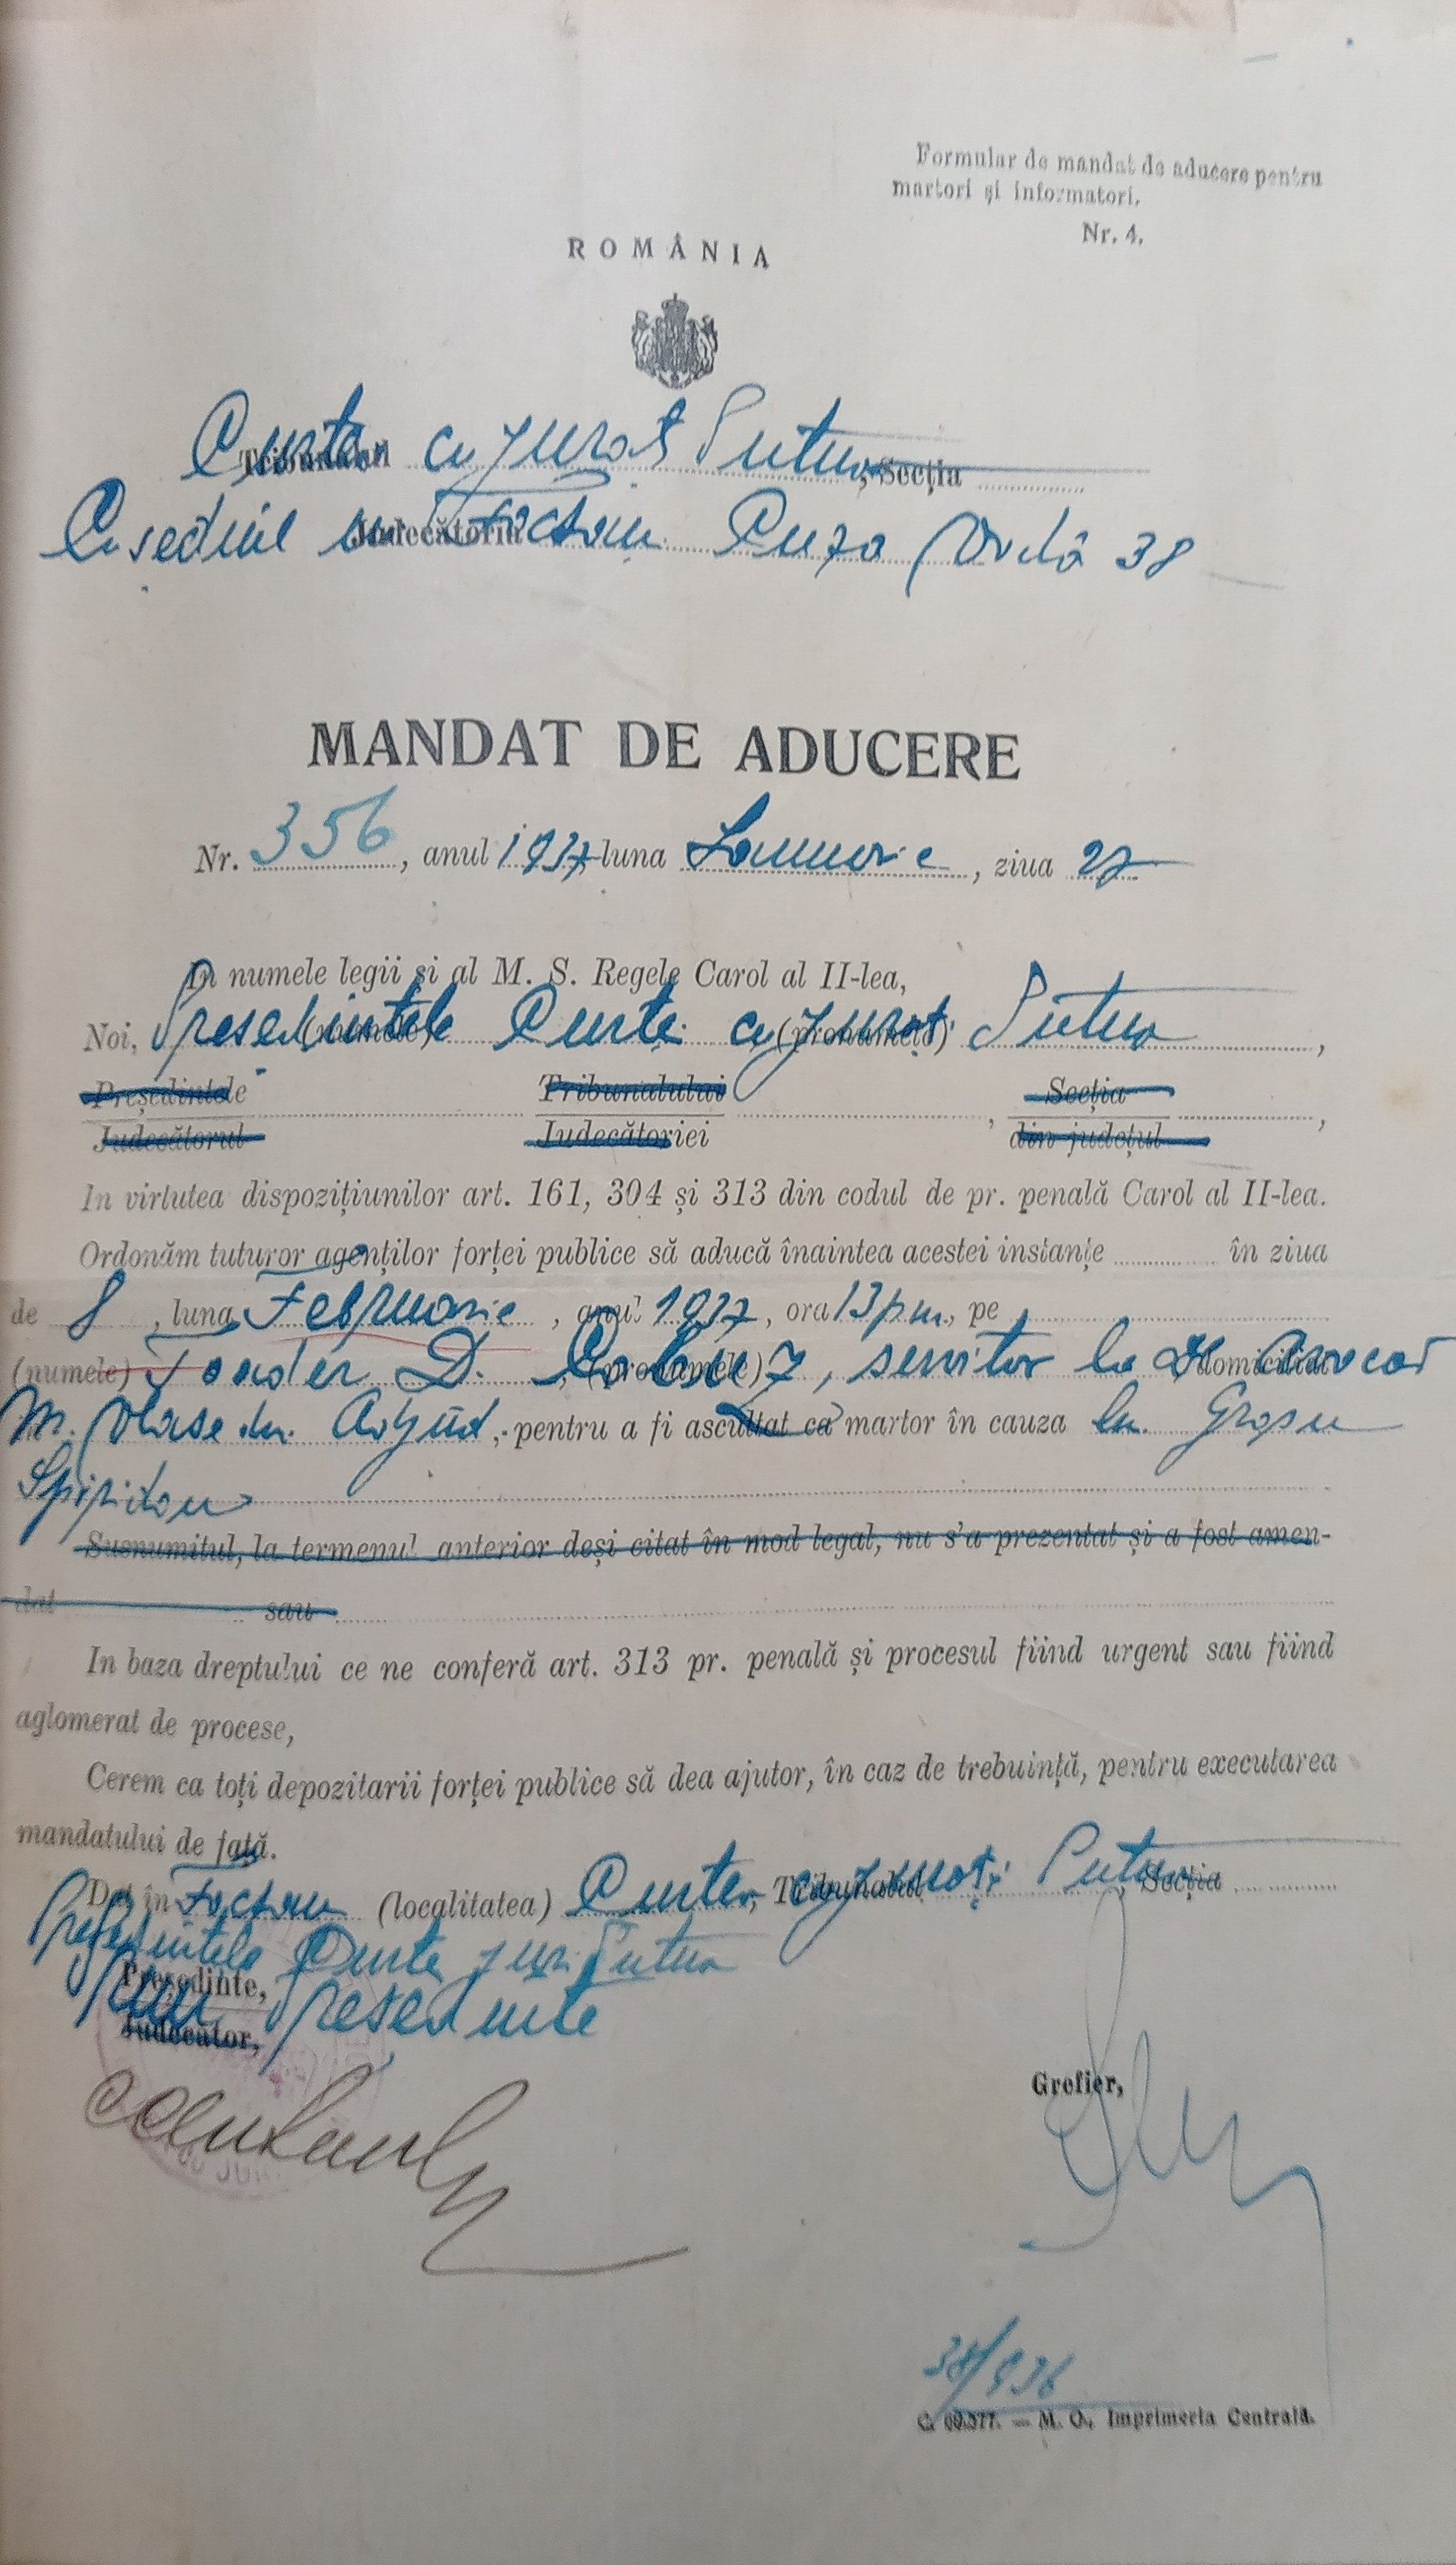 Formular de mandat de aducere pentru
martori și informatori.
Nr. 4.
ROMÂNIA
Curtea cu Jurați Putna, Secția
Cu sediul în Focșani Cuza Vodă 38
MANDAT DE ADUCERE
Nr. 356, anul 1937 luna Ianuarie, ziua 27
In numele legii și al M. S. Regele Carol al II-lea,
Noi, Președintele (numele) Curtei cu Jurați (pronumele) Putna,
Președintele Tribunalului, Secția,
Judecătorul Judecătoriei din județul
In virtutea dispozițiunilor art. 161, 304 și 313 din codul de pr. penală Carol al II-lea.
Ordonăm tuturor agenților forței publice să aducă înaintea acestei instanțe în ziua
de 8, luna Februarie, anul 1937, ora 13 p.m., pe
(numele) D. (pronumele), servitor la domiciliat avocat
M. Vlase din Adjud, pentru a fi ascultat ca martor în cauza lui Grosu
Spiridon
Susnumitul, la termenul anterior deși citat în mod legal, nu s'a prezentat și a fost amen-
dat sau
In baza dreptului ce ne conferă art. 313 pr. penală și procesul fiind urgent sau fiind
aglomerat de procese,
Cerem ca toți depozitarii forței publice să dea ajutor, în caz de trebuință, pentru executarea
mandatului de față.
Dat în Focșani (localitatea) Curtea, Tribunalul cu Jurați Putna, Secția
Președintele Curtei Jur. Putna
Președinte, Prim Președinte
Judecător,
Grefier,
38/936
C. 60.377. — M. O., Imprimeria Centrală.